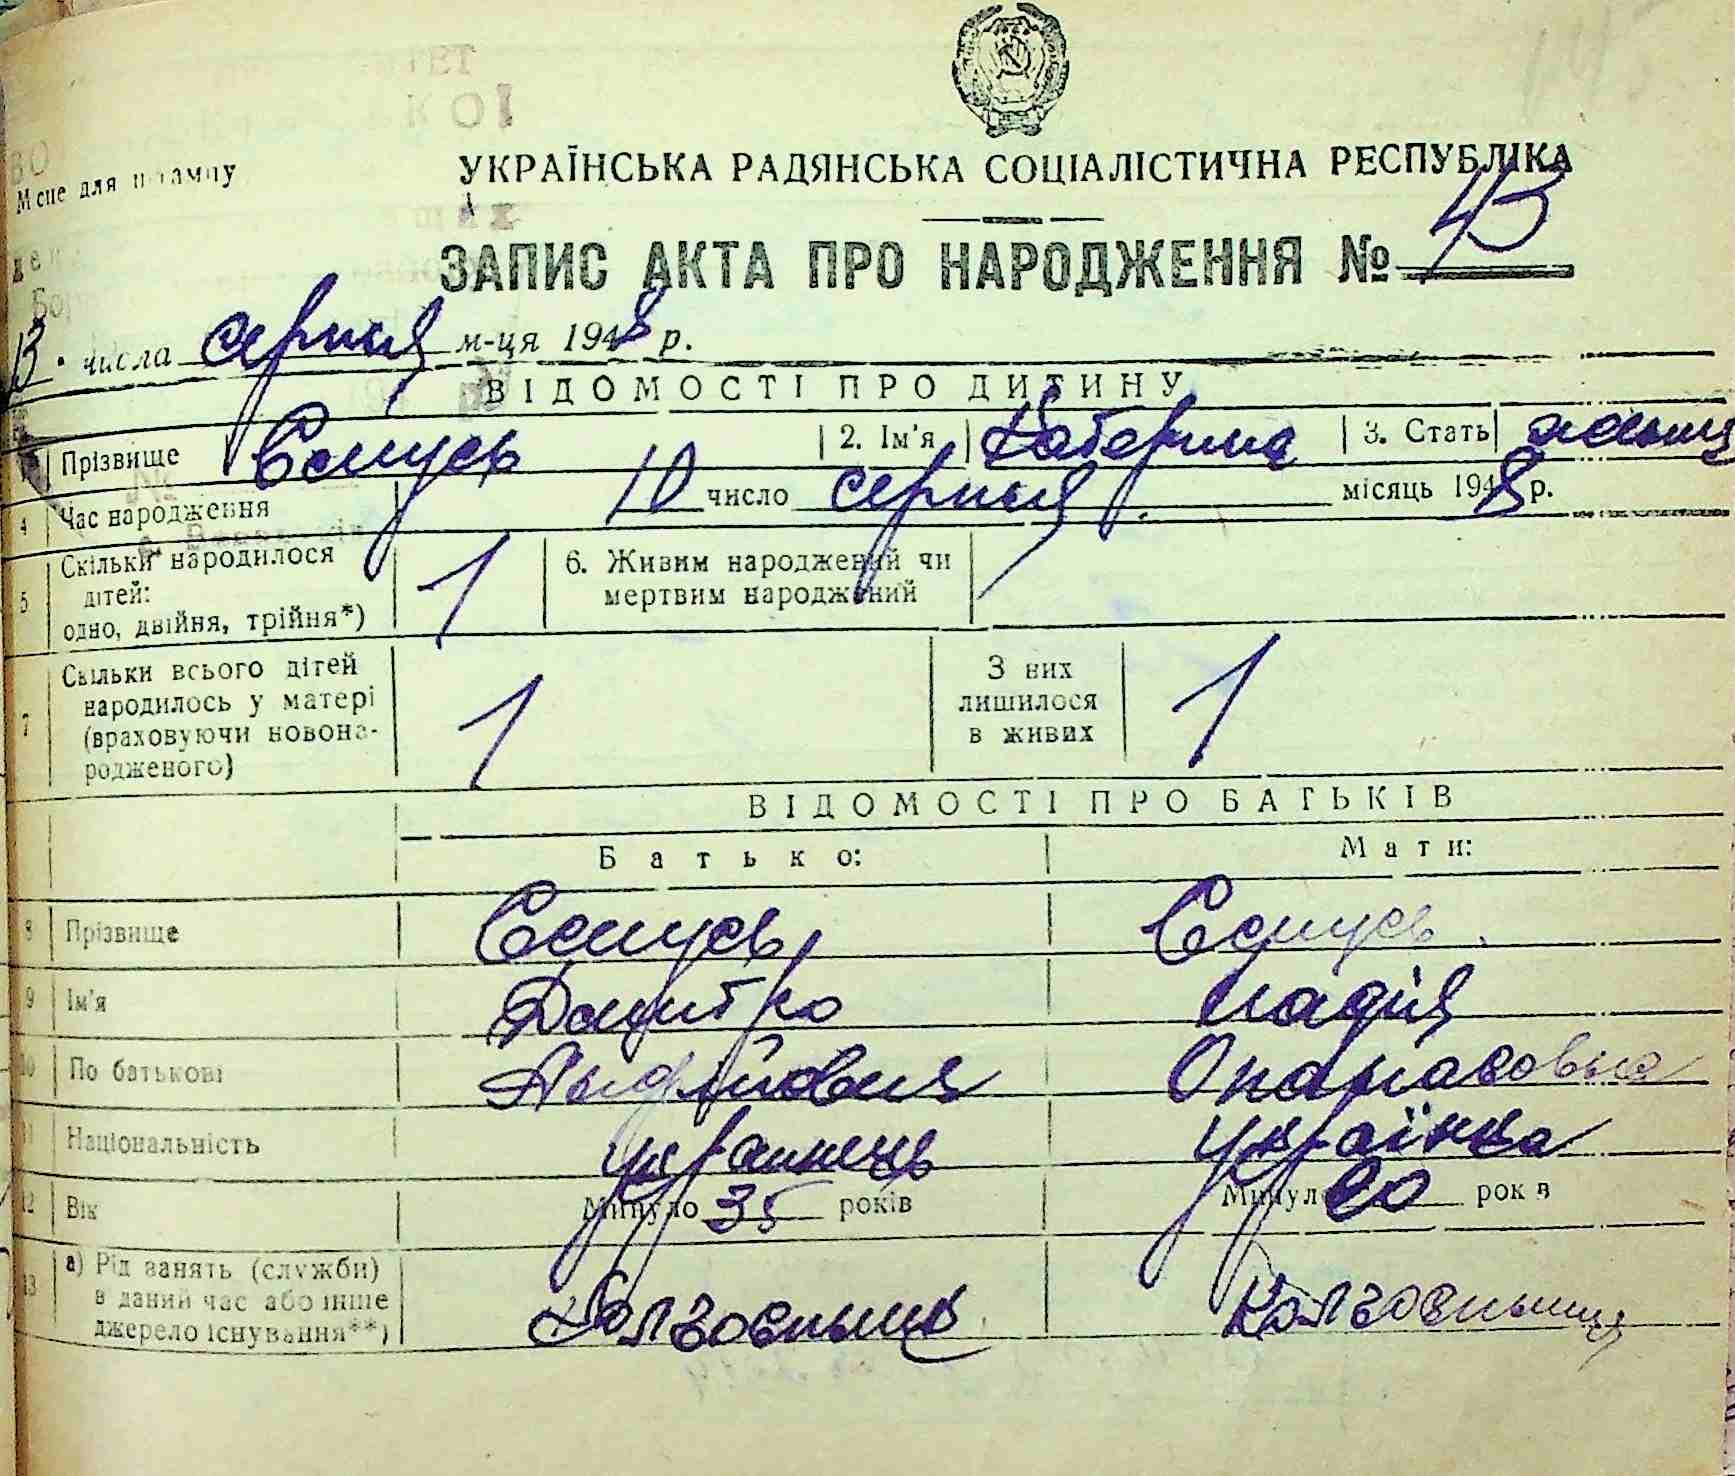 Місце для штампу
УКРАЇНСЬКА РАДЯНСЬКА СОЦІАЛІСТИЧНА РЕСПУБЛІКА
ЗАПИС АКТА ПРО НАРОДЖЕННЯ № 43
13 числа серпня м-ця 1948 р.
ВІДОМОСТІ ПРО ДИТИНУ
Прізвище Єсмусь 2. Ім'я Катерина 3. Стать
4 Час народження 10 число серпня місяць 1948 р.
5 Скільки народилося дітей: одно, двійня, трійня*) 1 6. Живим народжений чи мертвим народжений
7 Скільки всього дітей народилось у матері (враховуючи новонародженого) 1 З них лишилося в живих 1
ВІДОМОСТІ ПРО БАТЬКІВ
Батько: Мати:
8 Прізвище
9 Ім'я Дмитро Надія
10 По батькові Опанасовна
11 Національність українець українка
12 Вік Минуло 35 років Минуло 20 років
13 а) Рід занять (служби) в даний час або інше джерело існування**) Колгоспник Колгоспниця